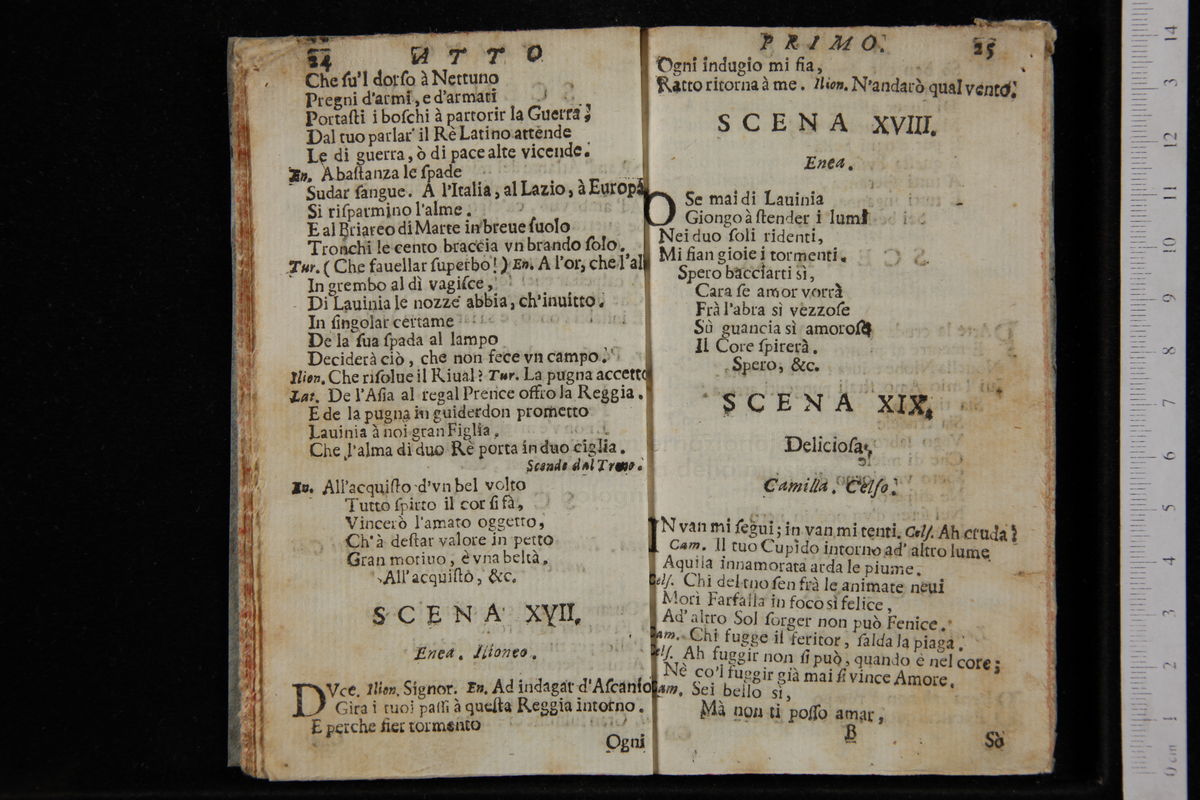 24 ATTO
Che ſu'l dorſo à Nettuno
Pregni d'armi, e d'armati
Portaſti i boſchi à partorir la Guerra;
Dal tuo parlar' il Rè Latino attende
Le di guerra, ò di pace alte vicende.
En. Abaſtanza le ſpade
Sudar ſangue. A l'Italia, al Lazio, à Europa
Si riſparmino l'alme.
E al Briareo di Marte in breue ſuolo
Tronchi le cento braccia vn brando ſolo.
Tur. (Che fauellar ſuperbo!) En. A l'or, che l'al
In grembo al dì vagiſce,
Di Lauinia le nozze abbia, ch'inuitto.
In ſingolar certame
De la ſua ſpada al lampo
Deciderà ciò, che non fece vn campo.
Ilion. Che riſolue il Riual? Tur. La pugna accetto
Lat. De l'Aſia al regal Prence offro la Reggia.
E de la pugna in guiderdon prometto
Lauinia à noi gran Figlia.
Che l'alma di duo Rè porta in duo ciglia.
Scende dal Trono.
En. All'acquiſto d'vn bel volto
Tutto ſpirto il cor ſi fà,
Vincerò l'amato oggetto,
Ch'à deſtar valore in petto
Gran motiuo, è vna beltà.
All'acquiſto, &c.
SCENA XVII.
Enea. Ilioneo.
DVce. Ilion. Signor. En. Ad indagar d'Aſcanio
Gira i tuoi paſſi à queſta Reggia intorno.
E perche fier tormento
Ogni
PRIMO. 25
Ogni indugio mi fia,
Ratto ritorna à me. Ilion. N'andarò qual vento.
SCENA XVIII.
Enea.
O Se mai di Lauinia
Giongo à ſtender i lumi
Nei duo ſoli ridenti,
Mi fian gioie i tormenti.
Spero bacciarti sì,
Cara ſe amor vorrà
Frà l'abra sì vezzoſe
Sù guancia sì amoroſe
Il Core ſpirerà.
Spero, &c.
SCENA XIX.
Delicioſa.
Camilla. Celſo.
IN van mi ſegui; in van mi tenti. Celſ. Ah cruda!
Cam. Il tuo Cupido intorno ad' altro lume
Aquila innamorata arda le piume.
Celſ. Chi del tuo ſen frà le animate neui
Morì Farfalla in foco sì felice,
Ad' altro Sol ſorger non può Fenice.
Cam. Chi fugge il feritor, ſalda la piaga.
Celſ. Ah fuggir non ſi può, quando è nel core;
Nè co'l fuggir già mai ſi vince Amore.
Cam. Sei bello sì,
Mà non ti poſſo amar,
B
Sò